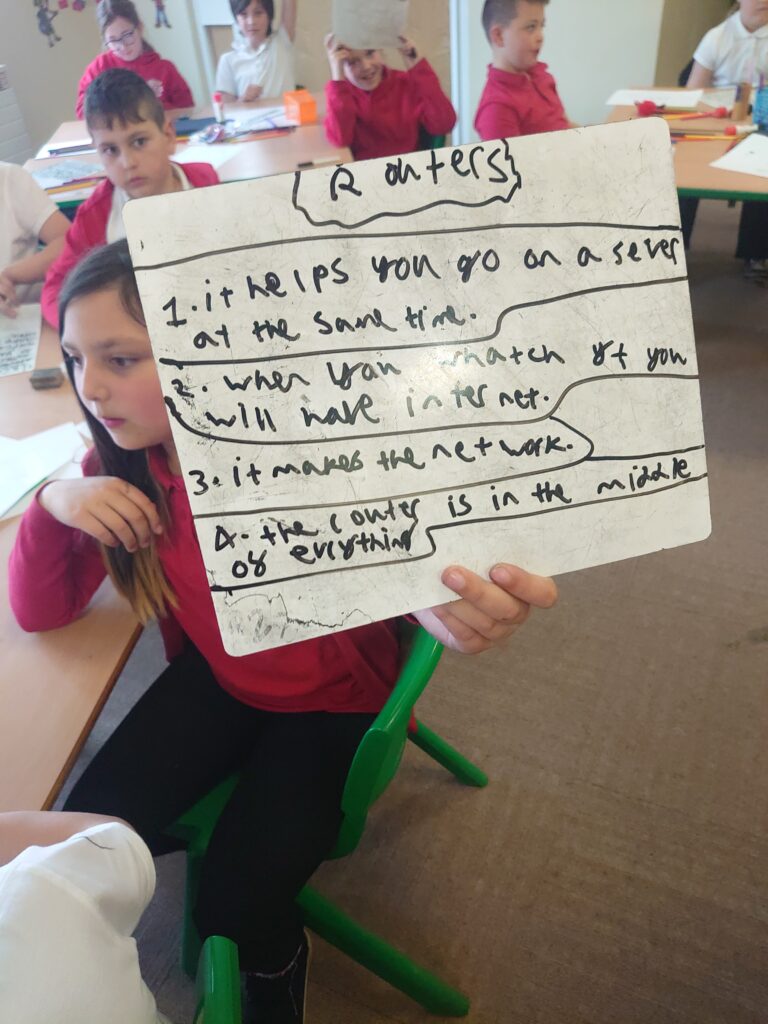 Routers
1. it helps you go on a sever
at the same time.
2. when you whatch yt you
will have internet.
3. it makes the net work.
4. the router is in the middle
of everything